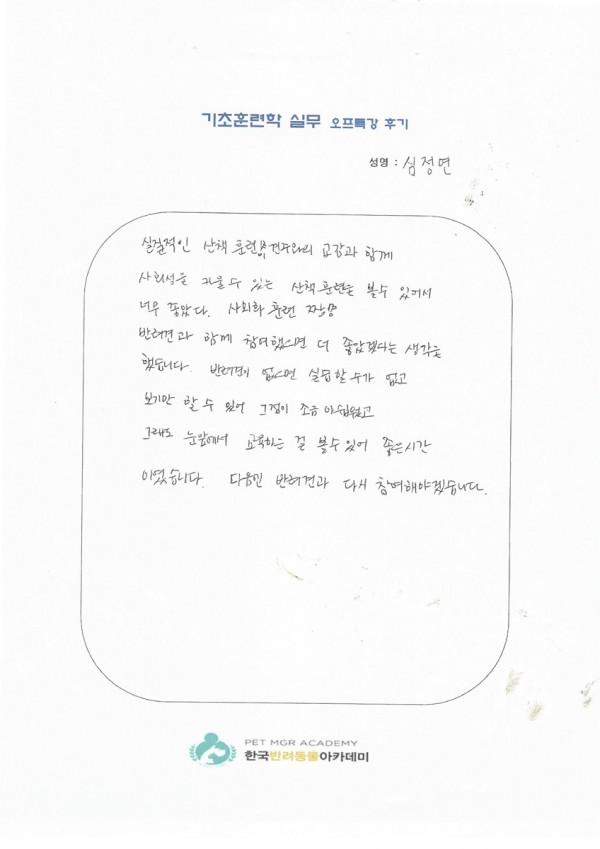 기초훈련학 실무 오프특강 후기
성명 : 심정연
실질적인 산책 훈련 견주와의 교감과 함께
사회성을 키울 수 있는 산책 훈련을 볼수 있어서
너무 좋았다. 사회화 훈련 짱
반려견과 함께 참여했으면 더 좋았겠다는 생각을
했습니다. 반려견이 없으면 실습할 수가 없고
보기만 할 수 있어 그점이 조금 아쉬웠고
그래도 눈앞에서 교육하는 걸 볼수있어 좋은시간
이였습니다. 다음엔 반려견과 다시 참여해야겠습니다.
PET MGR ACADEMY
한국반려동물아카데미